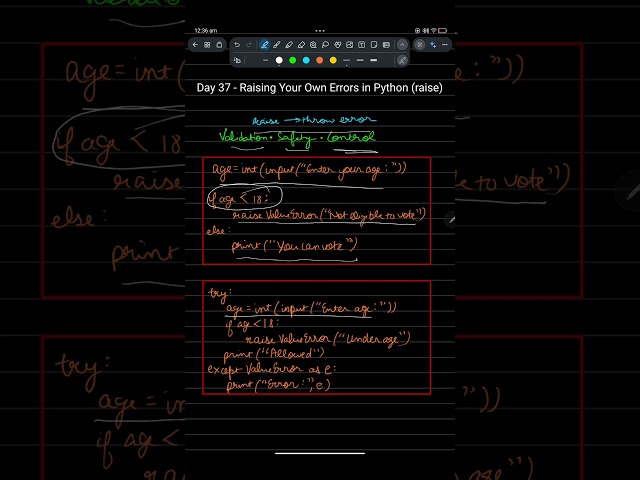 12:36 am
Day 37 - Raising Your Own Errors in Python (raise)
raise → throw error
Validation • Safety • Control
age = int(input("Enter your age:"))
if age < 18:
raise ValueError("Not eligible to vote")
else:
print("You can vote")
try:
age = int(input("Enter age:"))
if age < 18:
raise ValueError("Under age")
print("Allowed")
except ValueError as e:
print("Error:", e)
age = int(
:"))
if age < 18
raise
le to vote")
else:
print
try:
age = in
"))
if age <